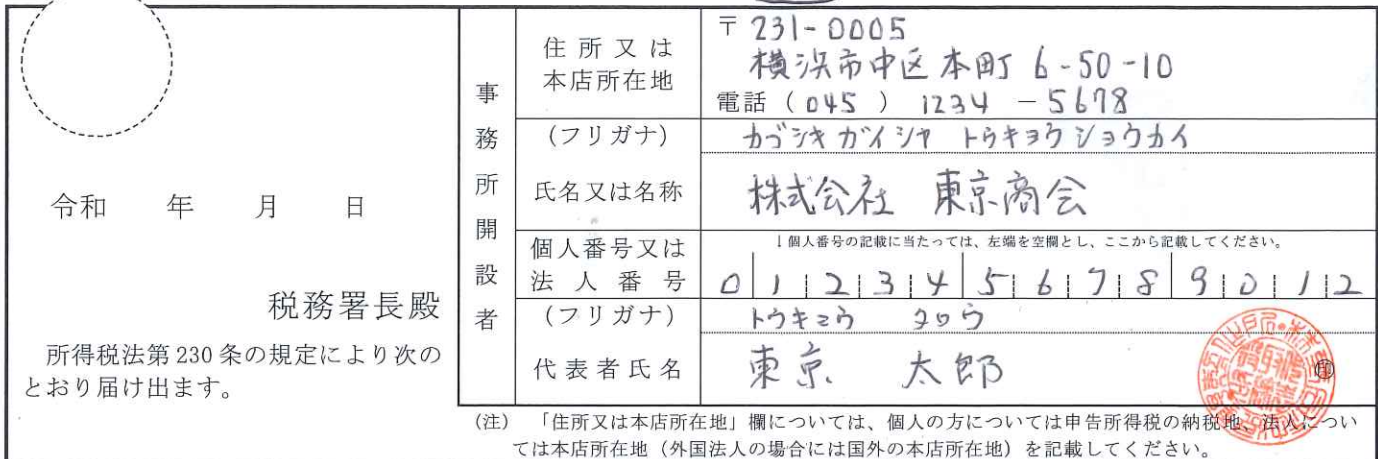 令和 年 月 日
税務署長殿
所得税法第230条の規定により次の
とおり届け出ます。
事務所開設者
住所又は
本店所在地
〒231-0005
横浜市中区本町6-50-10
電話(045) 1234-5678
(フリガナ)
カブシキガイシャ トウキョウショウカイ
氏名又は名称
株式会社 東京商会
個人番号又は
法人番号
↓個人番号の記載に当たっては、左端を空欄とし、ここから記載してください。
0123456789012
(フリガナ)
トウキョウ タロウ
代表者氏名
東京 太郎
㊞
(注) 「住所又は本店所在地」欄については、個人の方については申告所得税の納税地、法人につい
ては本店所在地(外国法人の場合には国外の本店所在地)を記載してください。